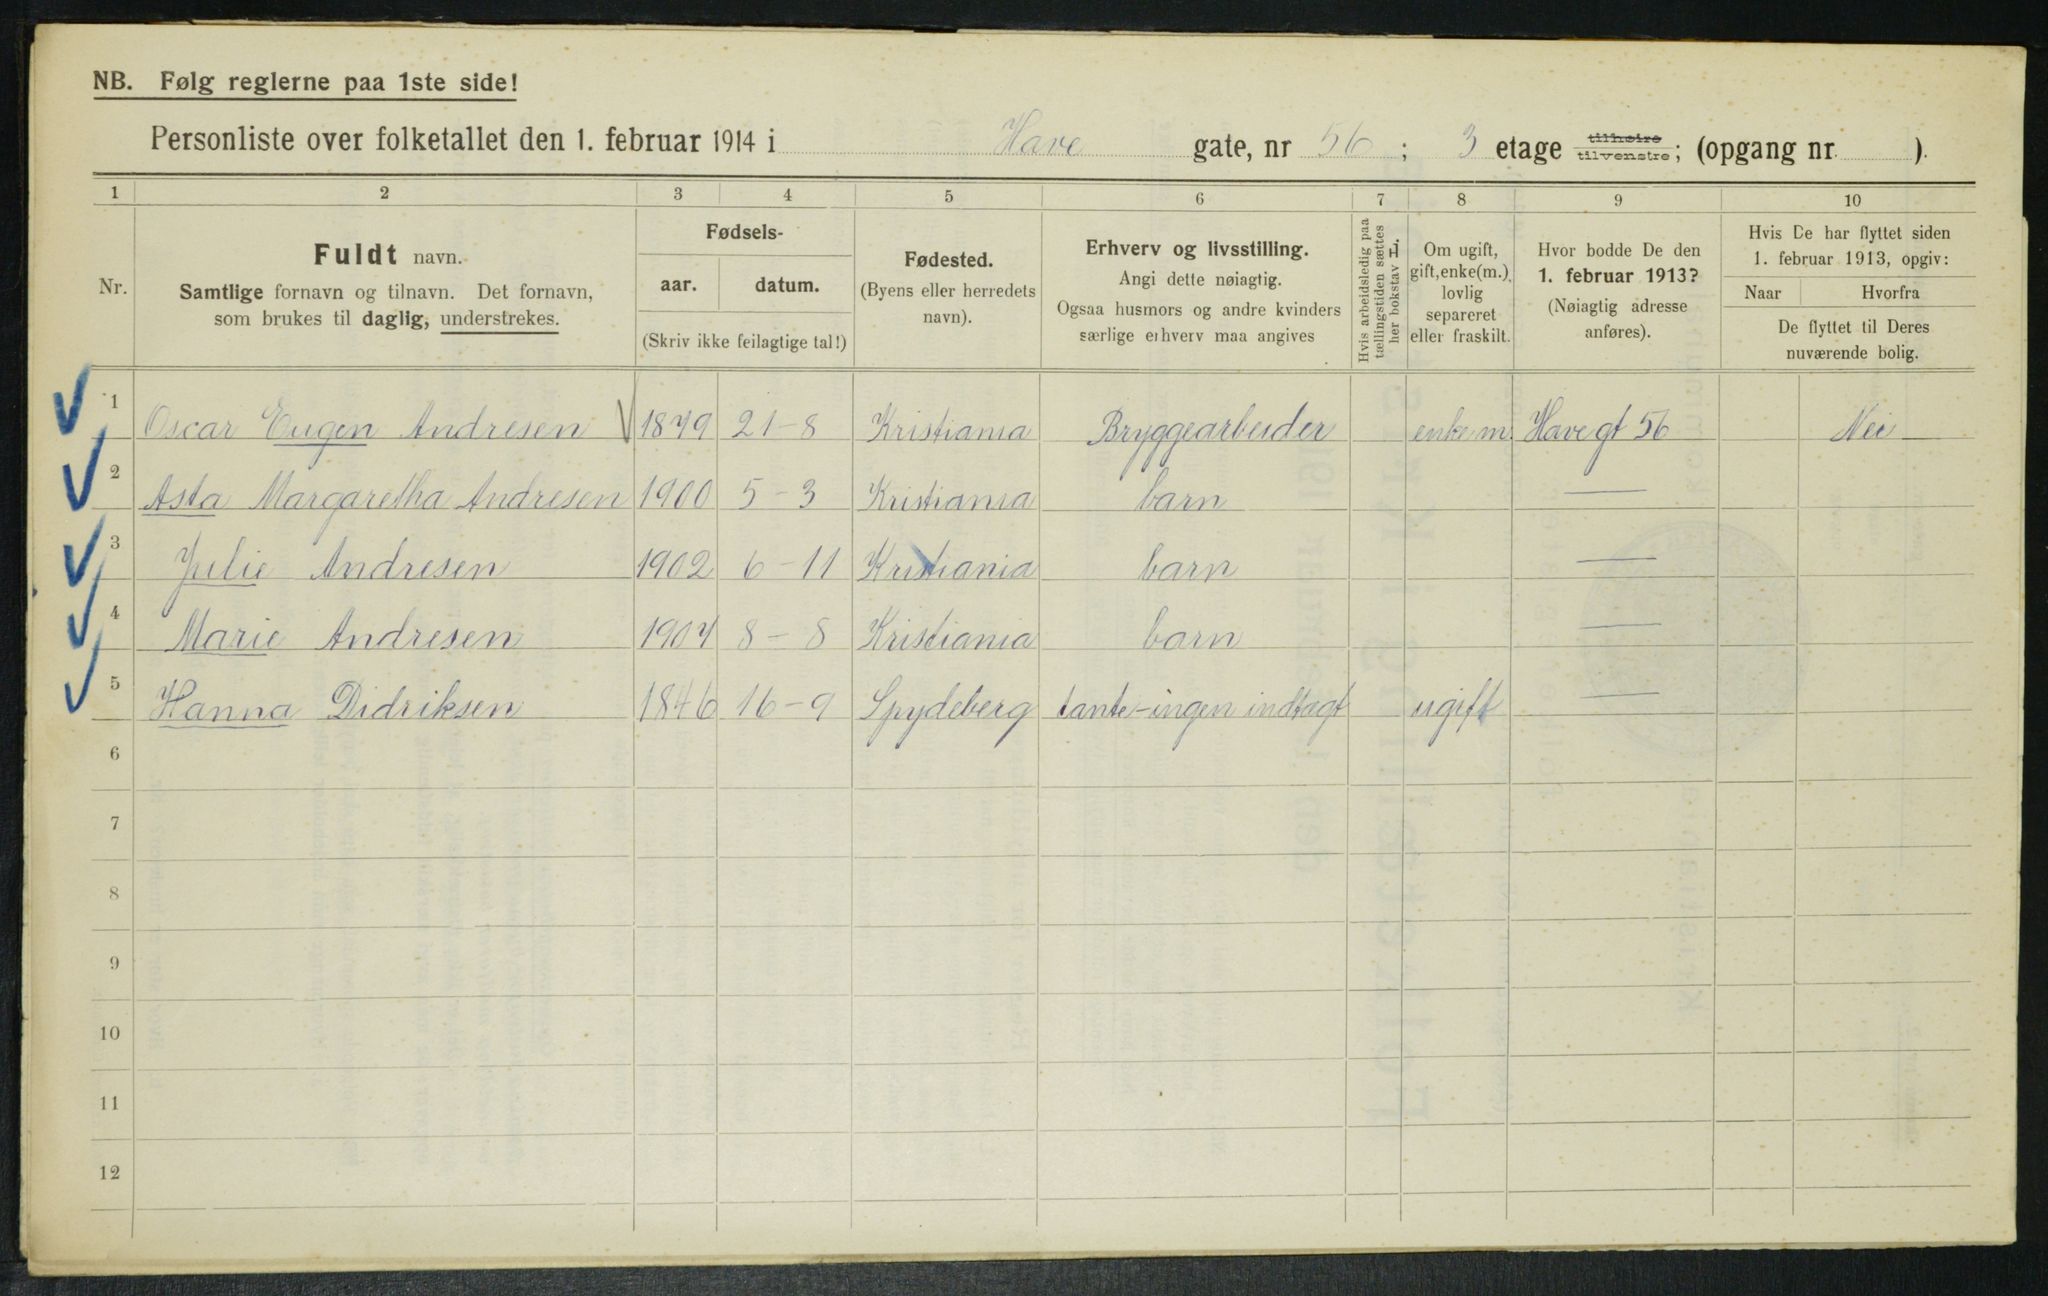 NB. Følg reglerne paa 1ste side!
Personliste over folketallet den 1. februar 1914 i Have gate, nr 56 ; 3 etage tilhøire tilvenstre ; (opgang nr ).
1 2 3 4 5 6 7 8 9 10
Nr.
Fuldt navn.
Samtlige fornavn og tilnavn. Det fornavn,
som brukes til daglig, understrekes.
Fødsels-
aar. datum.
(Skriv ikke feilagtige tal!)
Fødested.
(Byens eller herredets
navn).
Erhverv og livsstilling.
Angi dette nøiagtig.
Ogsaa husmors og andre kvinders
særlige erhverv maa angives
Hvis arbeidsledig paa
tællingstiden sættes
her bokstav L.
Om ugift,
gift, enke(m.),
lovlig
separeret
eller fraskilt.
Hvor bodde De den
1. februar 1913?
(Nøiagtig adresse
anføres).
Hvis De har flyttet siden
1. februar 1913, opgiv:
Naar Hvorfra
De flyttet til Deres
nuværende bolig.
1 Oscar Eugen Andresen 1879 21-8 Kristiania Bryggearbeider enkem. Havegt 56 Nei
2 Asta Margaretha Andresen 1900 5-3 Kristiania barn —
3 Julie Andresen 1902 6-11 Kristiania barn —
4 Marie Andresen 1904 8-8 Kristiania barn —
5 Hanna Didriksen 1846 16-9 Spydeberg tante-ingen indtægt ugift —
6
7
8
9
10
11
12